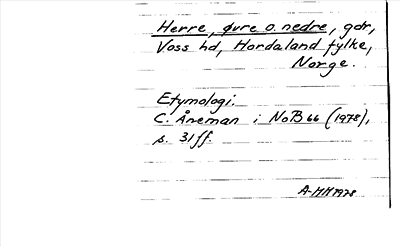 Herre, øvre o. nedre, gdr,
Voss hd, Hordaland fylke,
Norge.
Etymologi:
C. Åneman i NoB 66 (1978),
s. 31ff.
A-MH1978